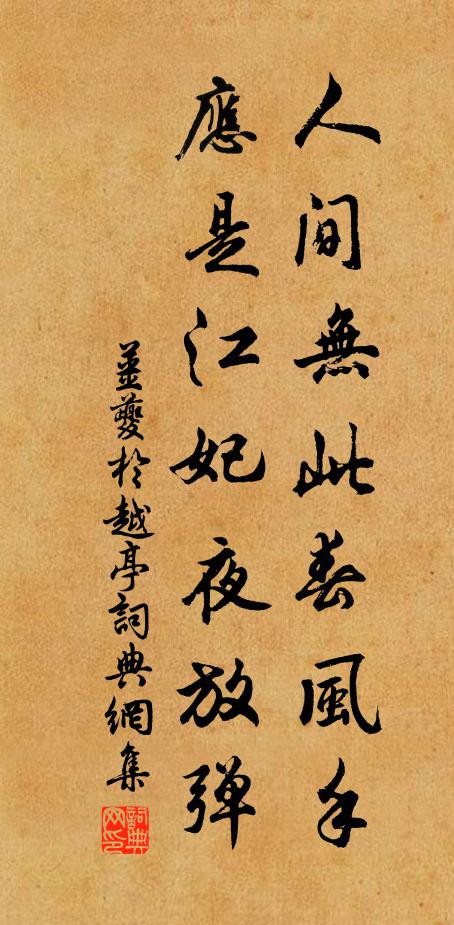 人間無此春風手
應是江妃夜放彈
姜夔於越亭詞典網集
詞典网印